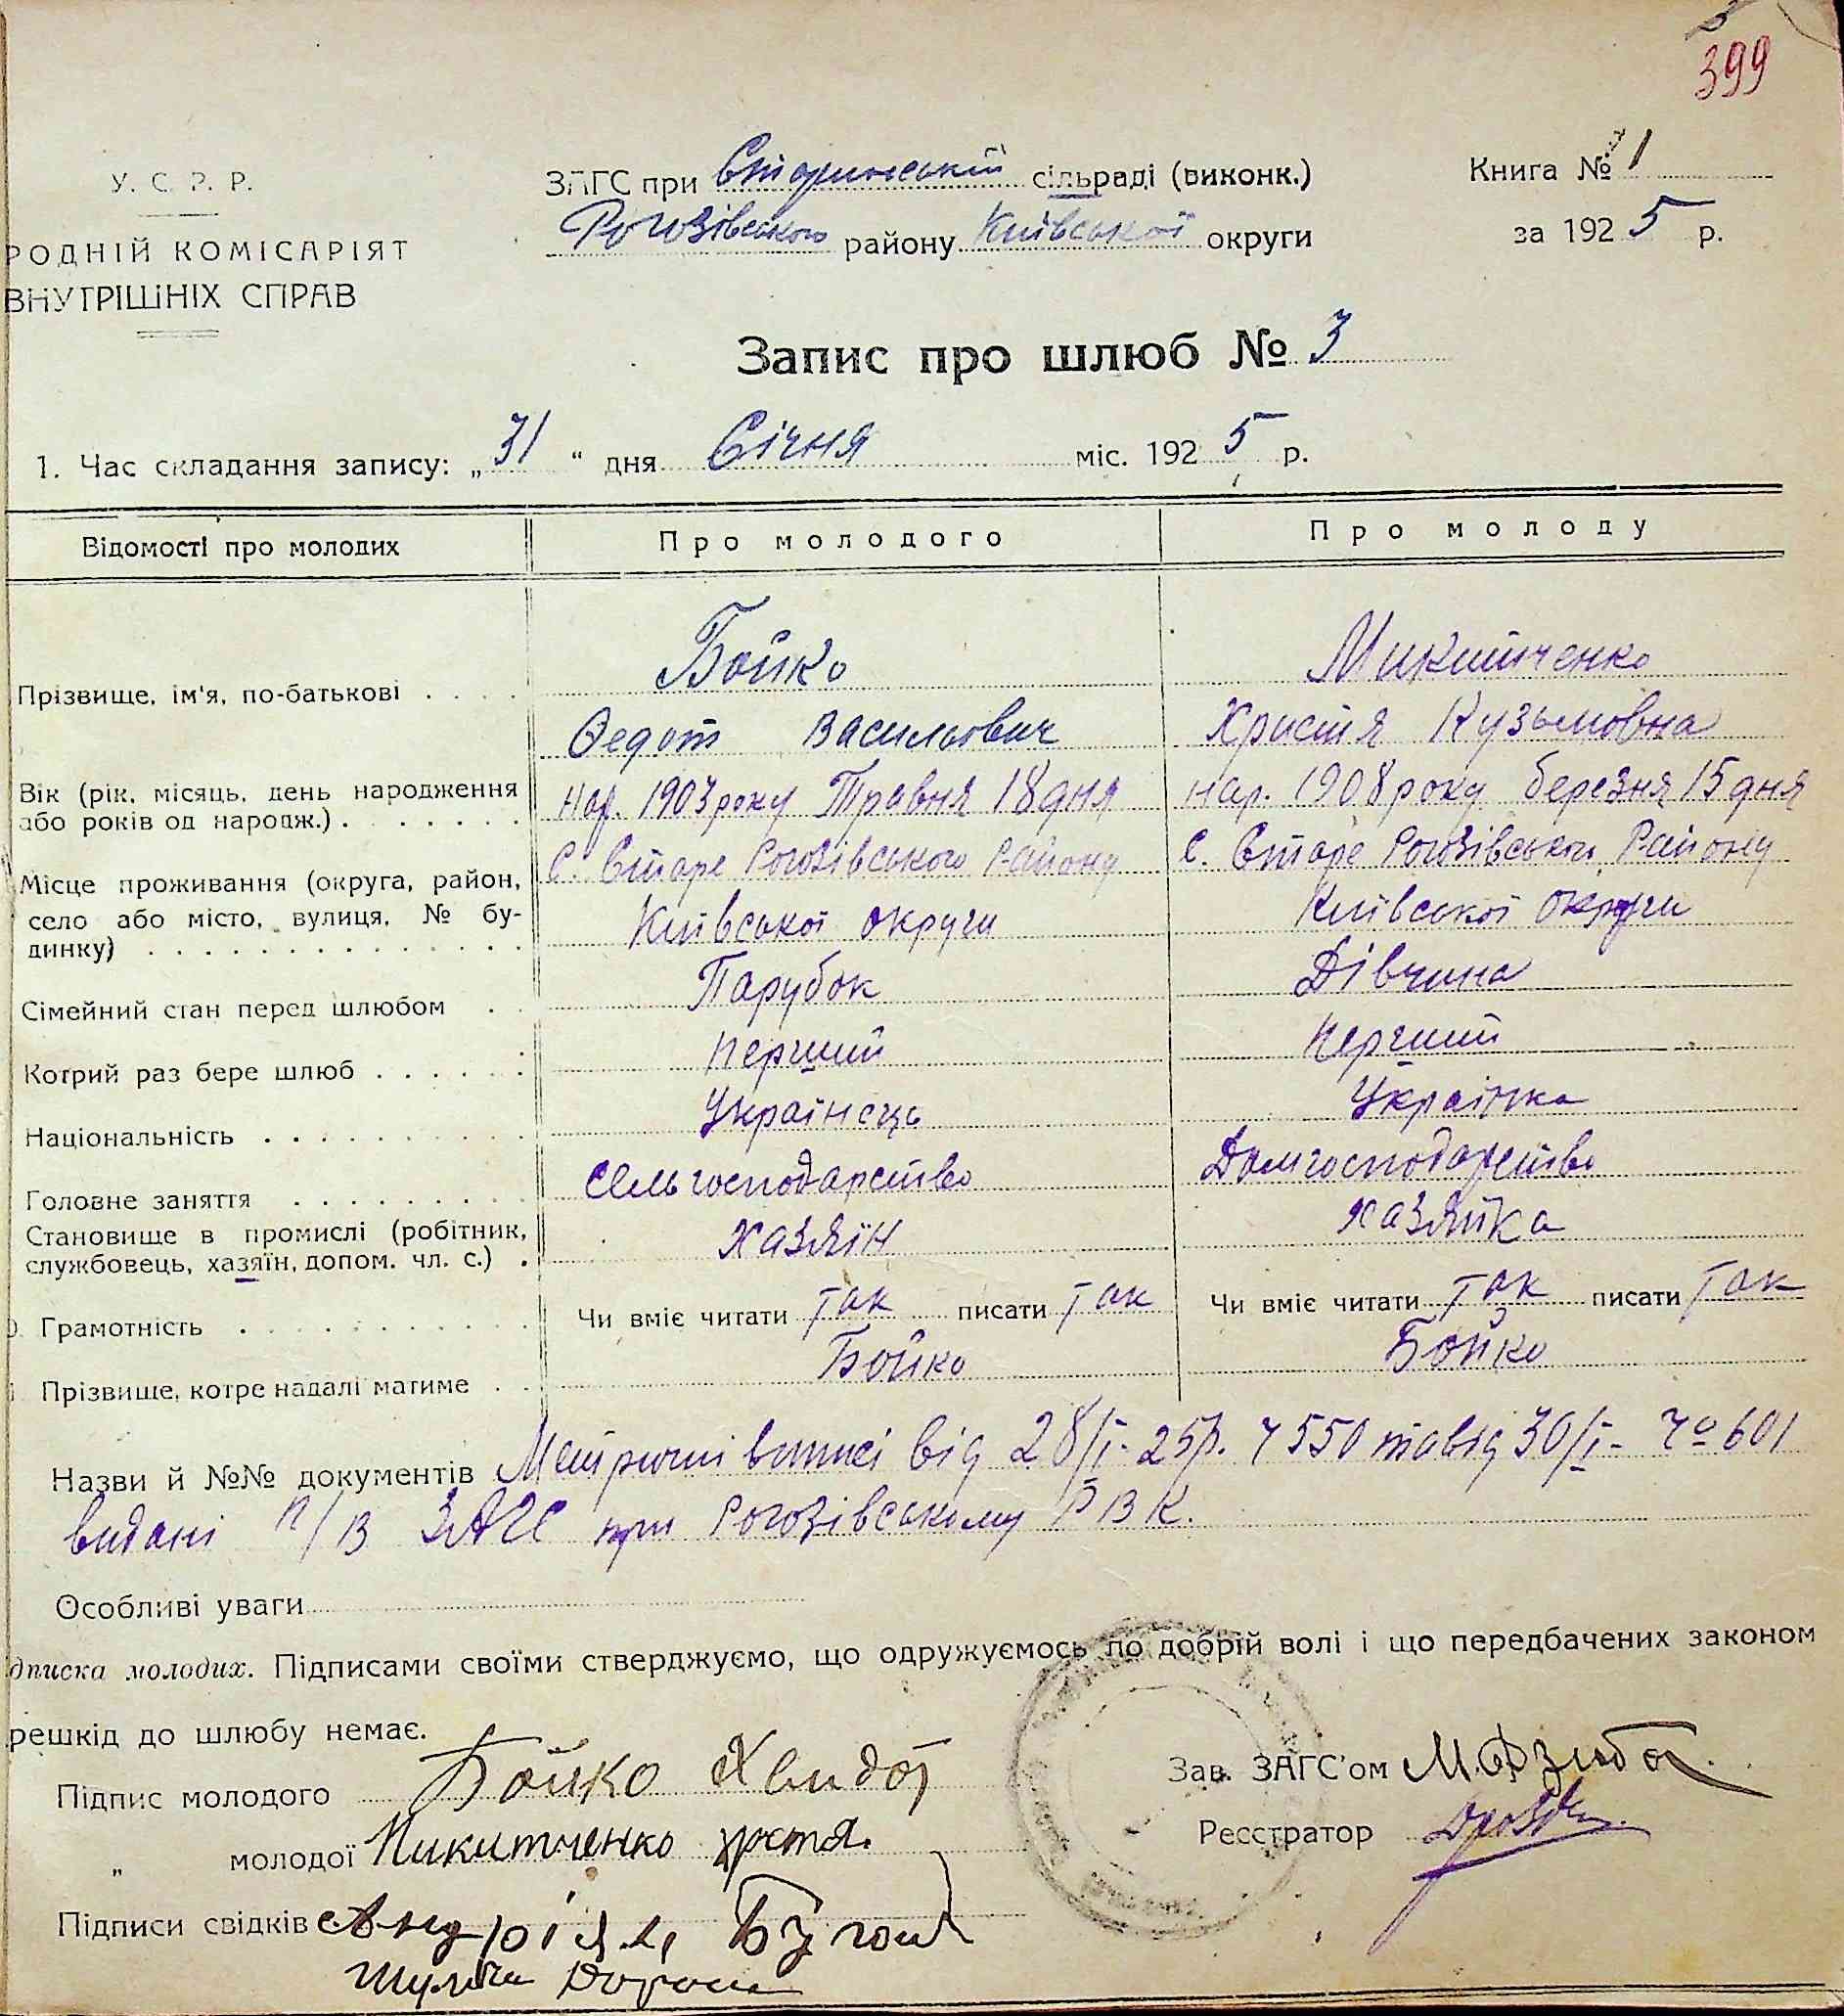 399
У. С. Р. Р.
РОДНІЙ КОМІСАРІЯТ
ВНУТРІШНІХ СПРАВ
ЗАГС при Старинській сільраді (виконк.)
Рогозівського району Київської округи
Книга № 1
за 1925 р.
Запис про шлюб № 3
1. Час складання запису: „31“ дня Січня міс. 1925 р.
Відомості про молодих Про молодого Про молоду
Бойко Микитченко
Прізвище, ім'я, по-батькові
Ѳедот Васильович Христя Кузьмовна
Вік (рік, місяць, день народження
або років од народж.)
нар. 1903 року Травня 18 дня нар. 1908 року березня 15 дня
С. Старе Рогозівського Району с. Старе Рогозівського Району
Місце проживання (округа, район,
село або місто, вулиця, № бу-
динку)
Київської округи Київської округи
Сімейний стан перед шлюбом Парубок Дівчина
Котрий раз бере шлюб перший перший
Національність Українець Українка
Головне заняття Сельгосподарство Домгосподарство
Становище в промислі (робітник,
службовець, хазяїн, допом. чл. с.)
хазяїн хазяйка
Грамотність Чи вміє читати так писати так Чи вміє читати так писати так
Прізвище, котре надалі матиме Бойко Бойко
Назви й №№ документів Метричні виписі від 28/I-25р. Ч 550 та від 30/I- Чо 601
видані п/в ЗАГС при Рогозівському РВК.
Особливі уваги
дписка молодих. Підписами своїми стверджуємо, що одружуємось по добрій волі і що передбачених законом
решкід до шлюбу немає.
Підпис молодого Бойко Хвидот
„ молодої Микитченко христя.
Зав. ЗАГС'ом
Реєстратор
Підписи свідків